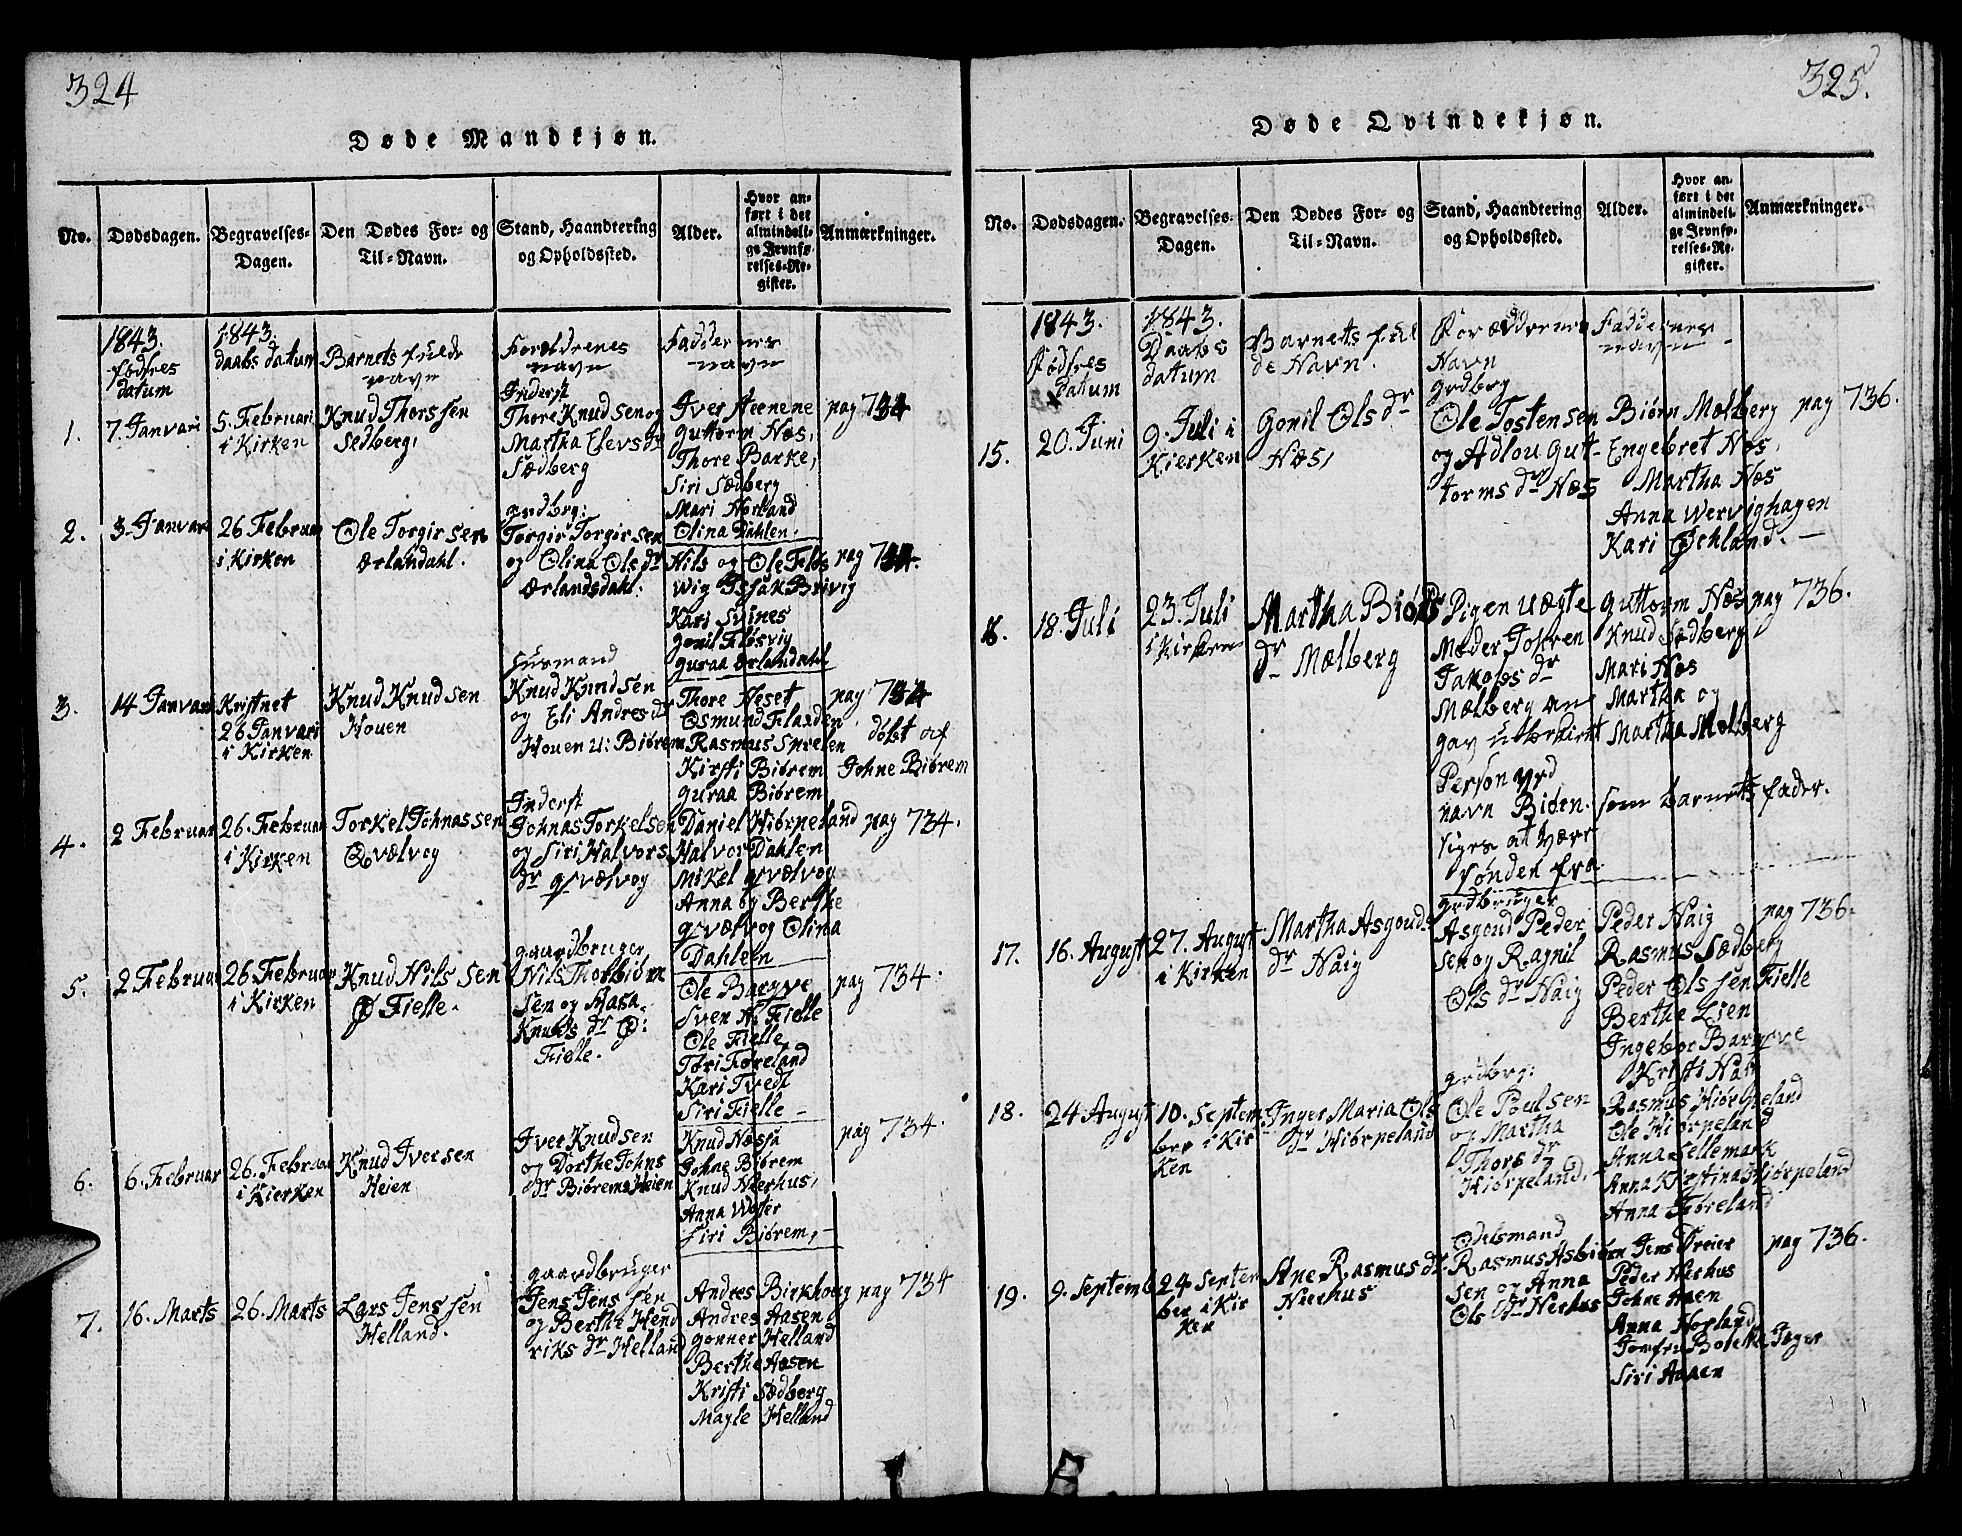 324
Døde Mandkjøn.
No.
Dødsdagen.
Begravelses-
Dagen.
Den Dødes For- og
Til-Navn.
Stand, Haandtering
og Opholdssted.
Alder.
Hvor an-
ført i det
almindeli-
ge Jevnfø-
relses-Re-
gister.
Anmærkninger.
1843.
fødsres
datum
1843.
daabs datum
Barnets fulde
navn
Foroldrenes
navn
Faddernes
navn
1.
7. Janvari
5. Februari
i Kirken
Knud Thorssen
Sedberg.
Inderst
Thore Knudsen og
Martha Elevs Dr
Sædberg
Iver Heenene
Guttorm Næs,
Thore Barke,
Siri Sædberg
Mari Horland
Olina Dahlen.
pag 734
2.
3. Janvari
26 Februar
i Kirken
Ole Torgirsen
Ørlandahl.
grdbrg:
Torgir Torgirsen
og Olina Ols dr
Ørlandsdahl:
Nils og Ole Fløs
wig Issak Brivig
Kari Svines
Gonil Fløsvig
Guraa Ørlandahl
pag 734
3.
14 Janvari
Kristnet
26 Janvari
i Kirken
Knud Knudsen
Houen
Husmand
Knud Knudsen
og Eli Andres dr
Houen u: Biørem
Thore Heset
Osmund Flaaden
Rasmus Sprelen
Kirsti Biørem
Guraa Biørem
pag 734
døbt af
Johne Biørem
4.
2 Februar
26. Februar
i Kirken
Torkel Johnassen
Qvælvog
Inderst
Johnas Torkelsen
og Siri Halvors
dr Qvælvog
Daniel Hiørpeland
Halvor Dahlen
Mikel Qvælvog
Anna og Berthe
Qvælvog Olina
Dahlen
pag 734.
5.
2 Februar
26 Februar
i Kirken
Knud Nilssen
Ø Fielle.
gaardbruger
Nils Thorbiørn
sen og Aasa
Knuds dr Ø:
Fielle.
Ole Bargve
Sven A: Fielle
Ole Fielle
Tori Føreland
Kari Tvedt
Siri Fielle
pag 734.
6.
6. Februar
26. Februar
i Kierken
Knud Iversen
Heien
Iver Knudsen
og Dorthe Johns
dr Biørems Heien
Knud Næssa
Johne Biørem
Knud Nierhus,
Anna Woster
Siri Biørem,
pag 734.
7.
16. Marts
26. Marts
Lars Jenssen
Helland.
gaardbruger
Jens Jenssen
og Berthe Hend
riks dr Helland
Andres Birkborg
Andres Aasen
Gonner Helland
Berthe Aasen
Kristi Sødberg
Magle Helland
pag 734
325.
Døde Qvindekjøn.
No.
Dødsdagen.
Begravelses-
Dagen.
Den Dødes For- og
Til-Navn.
Stand, Haandtering
og Opholdssted.
Alder.
Hvor an-
ført i det
almindeli-
ge Jevnfø-
relses-Re-
gister.
Anmærkninger.
1843.
fødsres
datum
1843.
Daabs
datum
Barnets ful
de Navn.
Forældrenes
Navn
Faddernes
navn
15.
20. Juni
9. Juli i
Kierken
Gonil Ols dr
Næs,
grdbrg
Ole Tostensen
og Adlou Gut-
torms dr Næs
Biørn Mælberg
Engebret Næs,
Martha Næs
Anna Wervighagen
Kari Øchland.
pag 736.
16.
18. Juli
23. Juli
i Kirken
Martha Biørs
dr Mælberg
Pigen Uægte
Moder Johren
Jakobs dr
Mælberg an
gav ubekient
Person ved
navn Biørn. som barnets fader.
siges at være
sønden fra.
Guttorm Næs
Knud Sødberg
Mari Næs
Martha og
Martha Mælberg
pag 736.
17.
16. August
27. August
i Kirken
Martha Asgouds
dr Haig
grdbruger
Asgoud Peder
sen og Ragnil
Ols dr Haig
Peder Haig
Rasmus Sædberg
Peder Olssen Fielle
Berthe Lien
Ingebor Bargve
Kristi Haig
pag 736.
18.
24 August
10. Septem
ber i Kir
ken
Inger Maria Ols
dr Hiørpeland
grdbrg:
Ole Poulsen
og Martha
Thors dr
Hiørpeland.
Rasmus Hiørpeland
Ole Hiørpeland
Anna Sellemark
Anna Kirstina Hiørpeland
Anna Føreland
19.
9. Septemb
24 Septem
ber i Kir
ken
Ane Rasmus dr
Nierhus
Odelsmand
Rasmus Asbiørn
sen og Anna
Ols dr Nerhus
Jens Dreier
Peder Nerhus
Johne Aaen
Anna Horland
Jomfru Bolethe Jager
Siri Aaaen
pag 736.